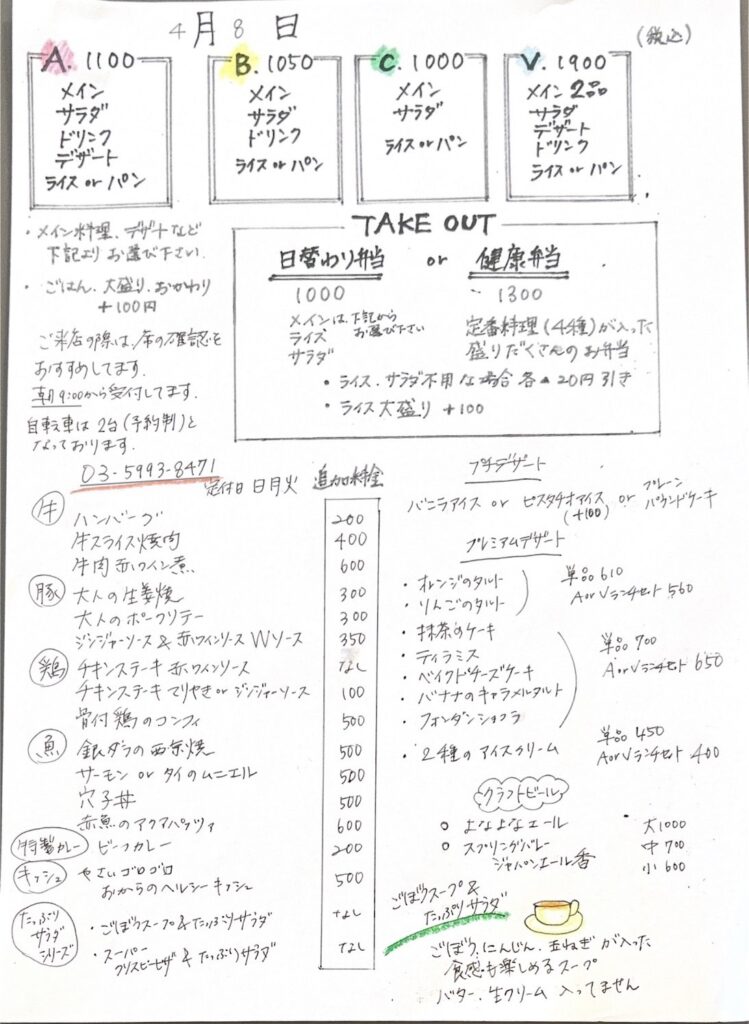 4月8日
(税込)
A. 1100
メイン
サラダ
ドリンク
デザート
ライス or パン
B. 1050
メイン
サラダ
ドリンク
ライス or パン
C. 1000
メイン
サラダ
ライス or パン
V. 1900
メイン 2品
サラダ
デザート
ドリンク
ライス or パン
・メイン料理、デザートなど
下記よりお選び下さい。
・ごはん、大盛り、おかわり
+100円
ご来店の際は、席の確認を
おすすめしてます。
朝9:00から受付してます。
自転車は2台(予約制)と
なっております。
03-5993-8471
定休日 日月火
TAKE OUT
日替わり弁当 or 健康弁当
1000
メインは、下記から
お選び下さい
ライス
サラダ
1300
定番料理(4種)が入った
盛りだくさんのお弁当
・ライス、サラダ不用な場合各▲20円引き
・ライス大盛り +100
追加料金
牛
ハンバーグ 200
牛スライス焼肉 400
牛肉赤ワイン煮 600
豚
大人の生姜焼 300
大人のポークソテー 300
ジンジャーソース & 赤ワインソース Wソース 350
鶏
チキンステーキ 赤ワインソース なし
チキンステーキてりやき or ジンジャーソース 100
骨付鶏のコンフィ 500
魚
銀ダラの西京焼 500
サーモン or タイのムニエル 500
穴子丼 500
赤魚のアクアパッツァ 600
特製カレー ビーフカレー 200
キッシュ やさいゴロゴロ
おからのヘルシーキッシュ 500
たっぷり
サラダ
シリーズ
・ごぼうスープ&たっぷりサラダ なし
・スーパー
クリスピーピザ & たっぷりサラダ なし
プチデザート
バニラアイス or ピスタチオアイス or プレーン
(+100) パウンドケーキ
プレミアムデザート
・オレンジのタルト
・りんごのタルト
単品 610
A or V ランチセット 560
・抹茶のケーキ
・ティラミス
・ベイクドチーズケーキ
・バナナのキャラメルタルト
・フォンダンショコラ
単品 700
A or V ランチセット 650
・2種のアイスクリーム
単品 450
A or V ランチセット 400
クラフトビール
○ よなよなエール
○ スプリングバレー
ジャパンエール香
・大1000
中 700
小 600
ごぼうスープ&
たっぷりサラダ
ごぼう、にんじん、玉ねぎが入った
食感も楽しめるスープ
バター、生クリーム入ってません